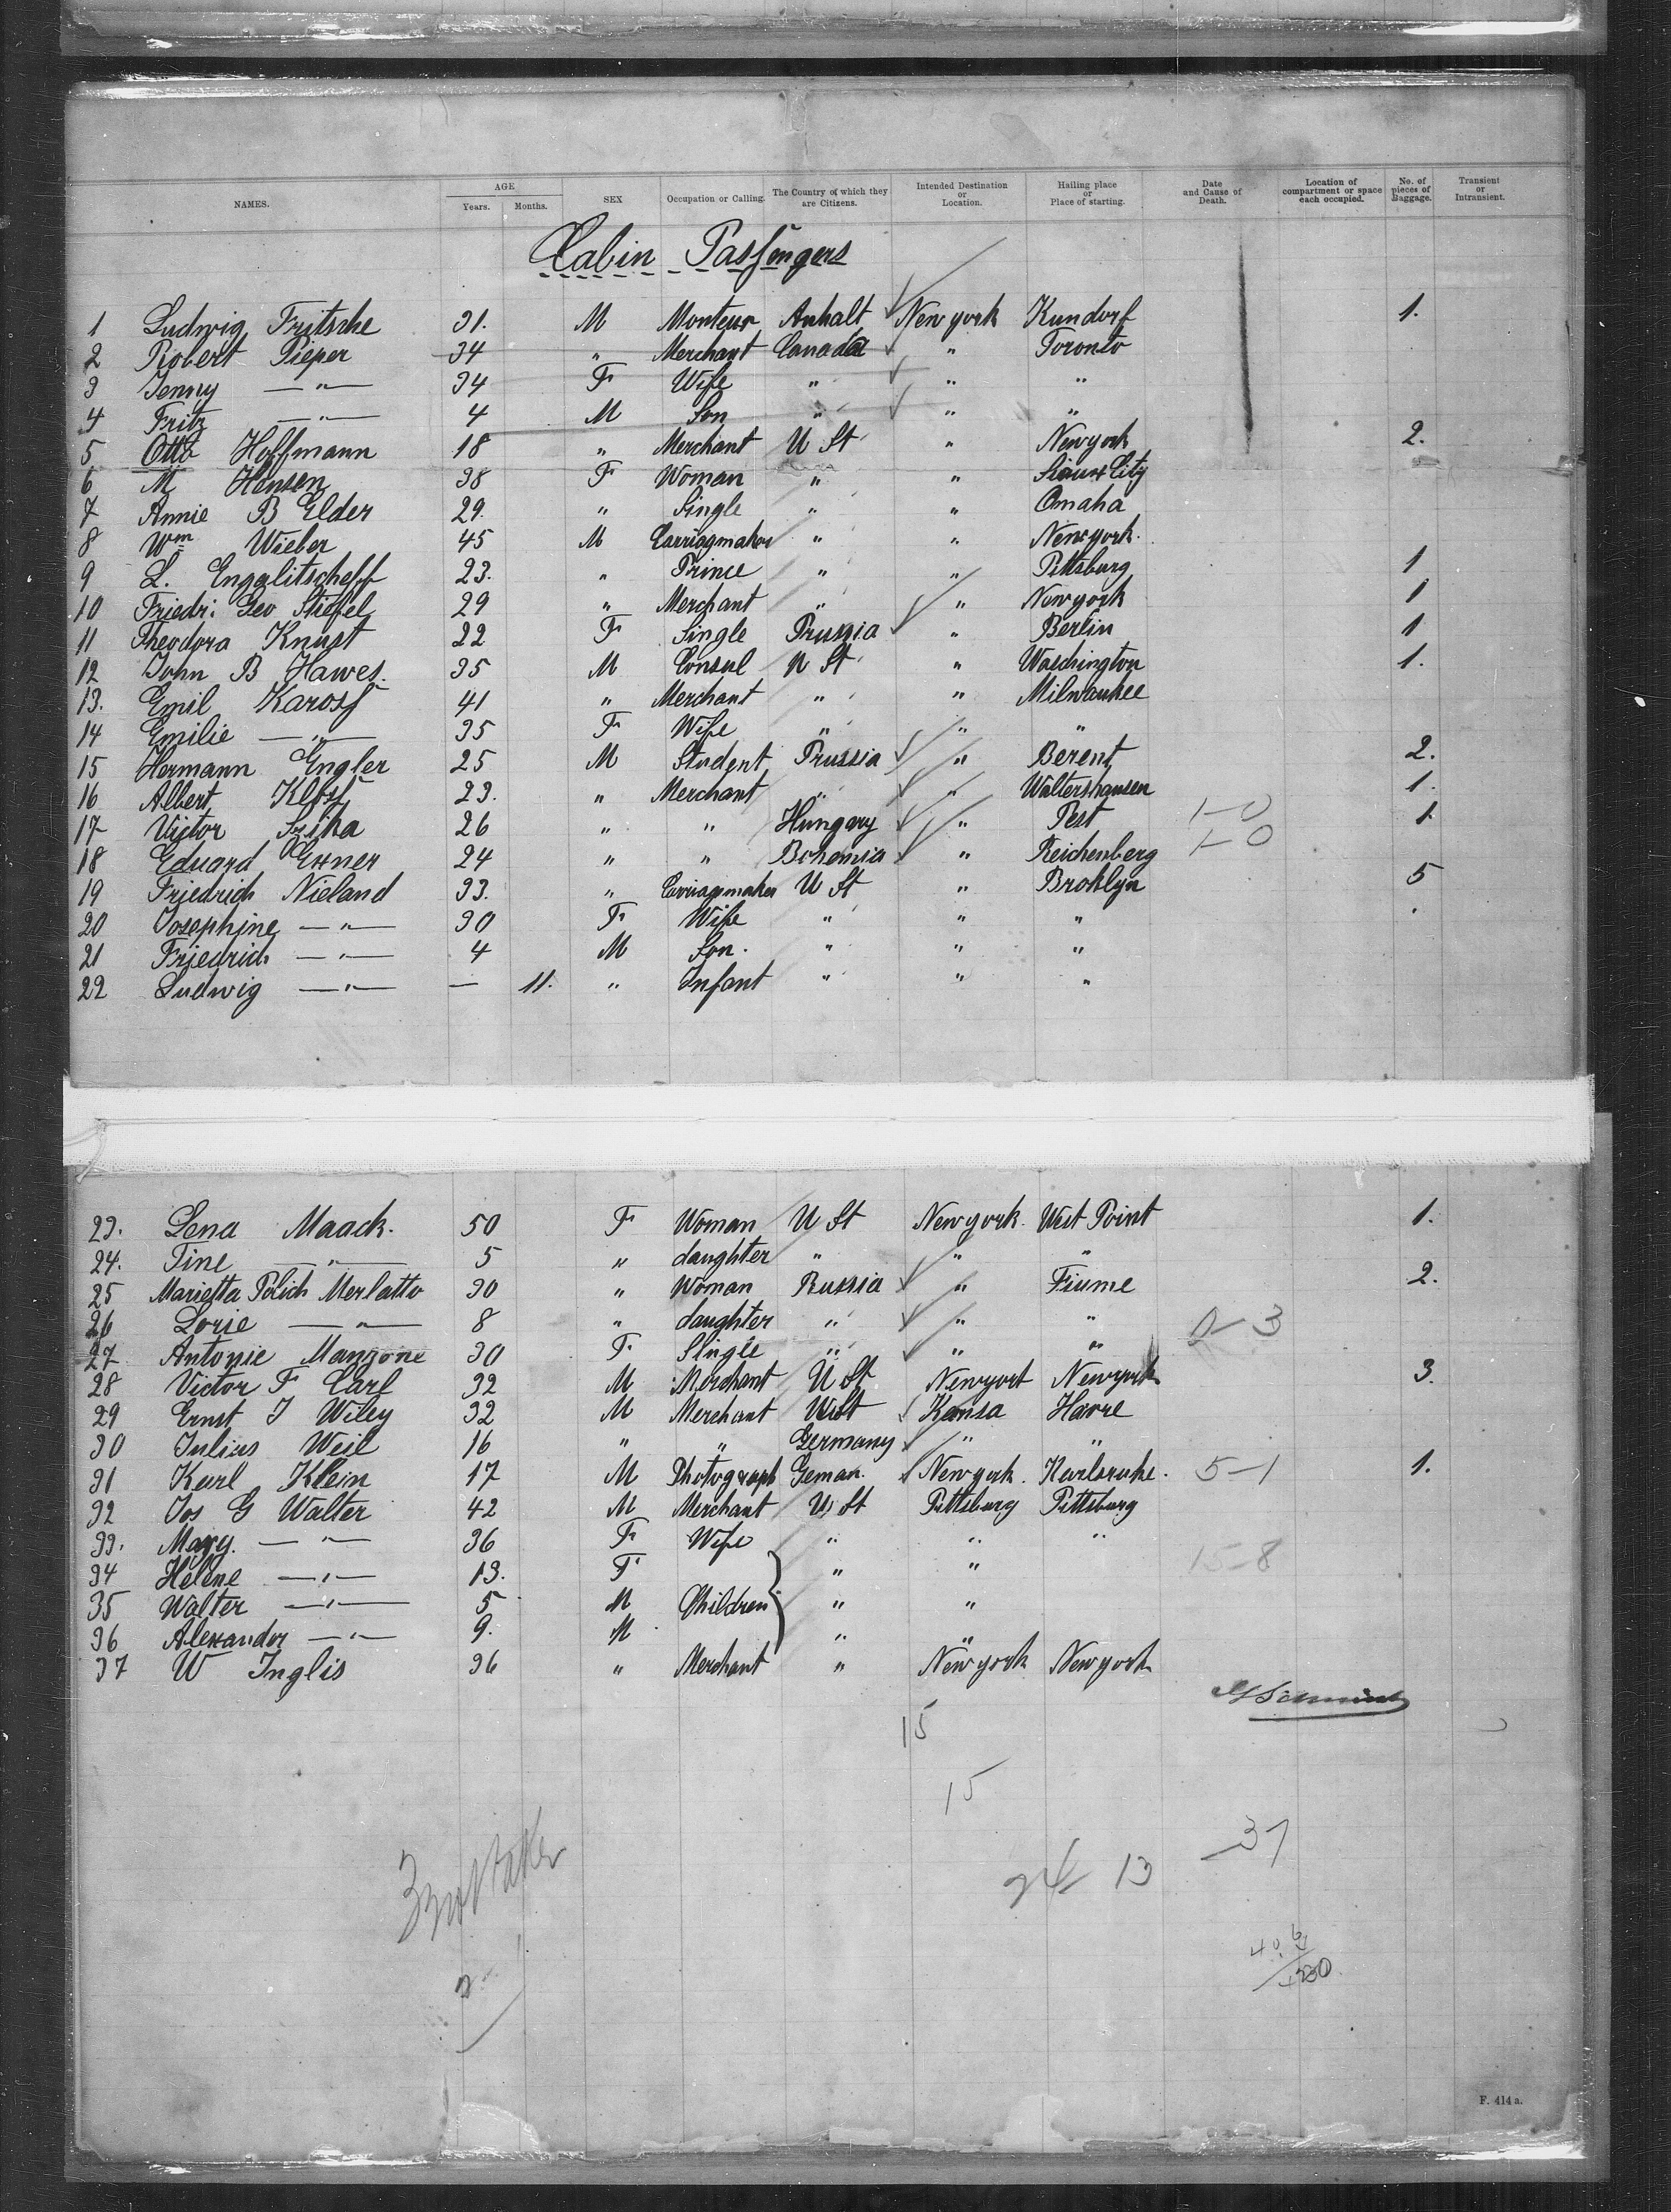 NAMES. AGE Years. Months. SEX Occupation or Calling. The Country of which they are Citizens. Intended Destination or Location. Hailing place or Place of starting. Date and Cause of Death. Location of compartment or space each occupied. No. of pieces of Baggage. Transient or Intransient.
Cabin Passengers
1 Ludwig Fritsche 31. M Monteur Anhalt New york Kundorf 1.
2 Robert Pieper 34 " Merchant Canada " Toronto
3 Jenny —"— 34 F Wife " " "
4 Fritz —"— 4 M Son " " "
5 Otto Hoffmann 18 " Merchant U St " Newyork 2.
6 M Hansen 38 F Woman " " Sioux City
7 Annie B Elder 29. " Single " " Omaha
8 Wm Wieber 45 M Carriagmaker " " Newyork.
9 L. Engalitscheff 23. " Prince " " Pittsburg 1
10 Friedr: Geo Stiefel 29 " Merchant " " Newyork 1
11 Theodora Knust 22 F Single Prussia " Berlin 1
12 John B Hawes. 35 M Consul U St " Waschington 1.
13. Emil Karoß 41 " Merchant " " Milwaukee
14 Emilie —"— 35 F Wife " " "
15 Hermann Engler 25 M Student Prussia " Berent 2.
16 Albert 23. " Merchant " " Waltershausen 1.
17 Victor 26 " " Hungary " Pest 1-0 1
18 Eduard Exner 24 " " Bohemia " Reichenberg 1-0
19 Friedrich Nieland 33. " Carriagemaker U St " Broklyn 5
20 Josephine —"— 30 F Wife " " "
21 Friedrich —"— 4 M Son. " " "
22 Ludwig —"— — 11. " Infant " " "
23. Lena Maack. 50 F Woman U St Newyork. West Point 1.
24. Tine —"— 5 " daughter " " "
25 Marietta Polich Merlatto 30 " Woman Russia " Fiume 2.
26 Lorie —"— 8 " daughter " " " 2-3
27 Antonie Manzone 30 F. Single " " "
28 Victor F Carl 32 M Merchant U St Newyort Newyork 3.
29 Ernst J Wiley 32 M Merchant U St Kansa Havre
30 Julius Weil 16 " " Germany " "
31 Karl Klein 17 M Photograph Geman. New york. Karlsruhe. 5-1 1.
32 Jos G Walter 42 M Merchant U St Pittsburg Pittsburg
33. Mary. —"— 36 F Wife " " "
34 Helene —"— 13. F " " 15-8
35 Walter —"— 5 M Children " "
36 Alexander —"— 9. M " "
37 W Inglis 36 " Merchant " New york New york
15
15
37
24 13
F. 414 a.